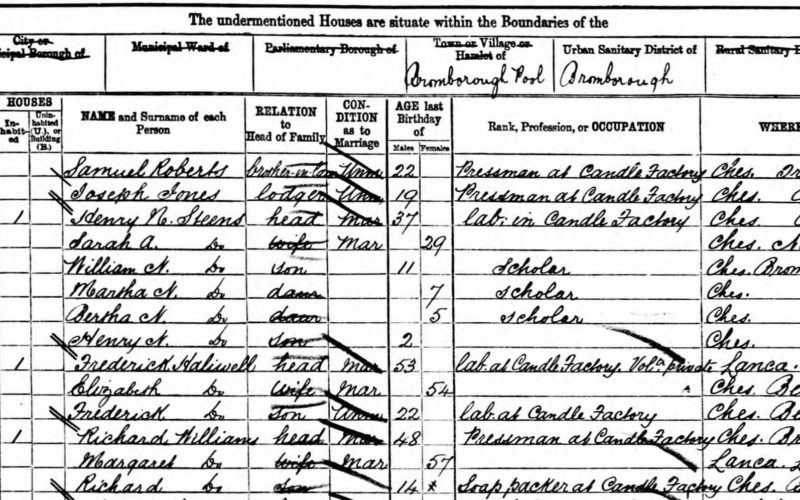 The undermentioned Houses are situate within the Boundaries of the
City or Municipal Ward of Parliamentary Borough of Town or Village or Urban Sanitary District of Rural Sanitary
cipal Borough of Hamlet of
Bromborough Pool Bromborough
HOUSES NAME and Surname of each Person RELATION to Head of Family CON-DITION as to Marriage AGE last Birthday of Rank, Profession, or OCCUPATION WHERE
In-habit-ed Unin-habited (U.), or Building (B.) Males Females
Samuel Roberts brother-in-law Unm 22 Pressman at Candle Factory Ches.
Joseph Jones lodger Unm 19 Pressman at Candle Factory Ches.
1 Henry N. Steens head Mar 37 lab: in Candle Factory Ches.
Sarah A. Do wife Mar 29 Ches. N.
William N. Do son 11 Scholar Ches. Brom
Martha N. Do daur 7 Scholar Ches.
Bertha N. Do daur 5 Scholar Ches.
Henry N. Do son 2 Ches.
1 Frederick Haliwell head Mar 53 lab. at Candle Factory. Volr. private Lanca.
Elizabeth Do Wife Mar 54 Ches. Be
Frederick Do Son Unm 22 lab. at Candle Factory Ches. Be
1 Richard Williams head Mar 48 Pressman at Candle Factory Ches. Br
Margaret Do Wife Mar 57 Lanca. L
Richard Do Son 14 * Soap packer at Candle Factory Ches. B